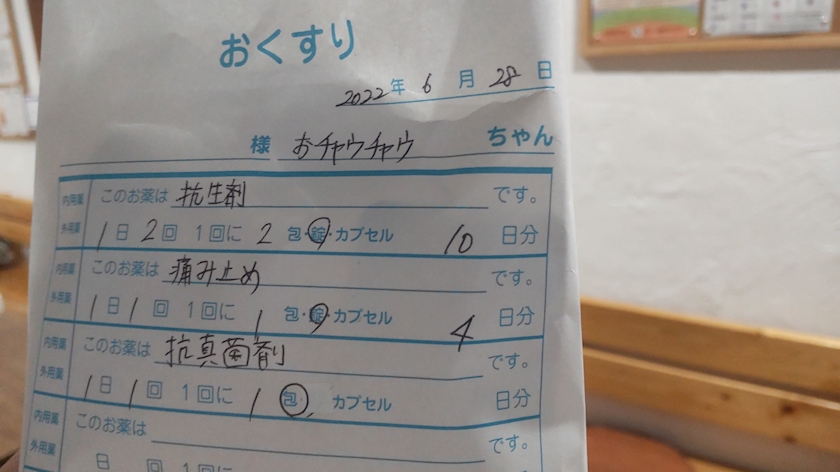 おくすり
2022年 6月 28日
様 おチャウチャウ ちゃん
内用薬 外用薬 このお薬は 抗生剤 です。
1日 2回 1回に 2 包・錠・カプセル 10日分
内用薬 外用薬 このお薬は 痛み止め です。
1日 1回 1回に 1 包・錠・カプセル 4日分
内用薬 外用薬 このお薬は 抗真菌剤 です。
1日 1回 1回に 1 包・ カプセル 日分
内用薬 外用薬 このお薬は です。
日 回 1回に